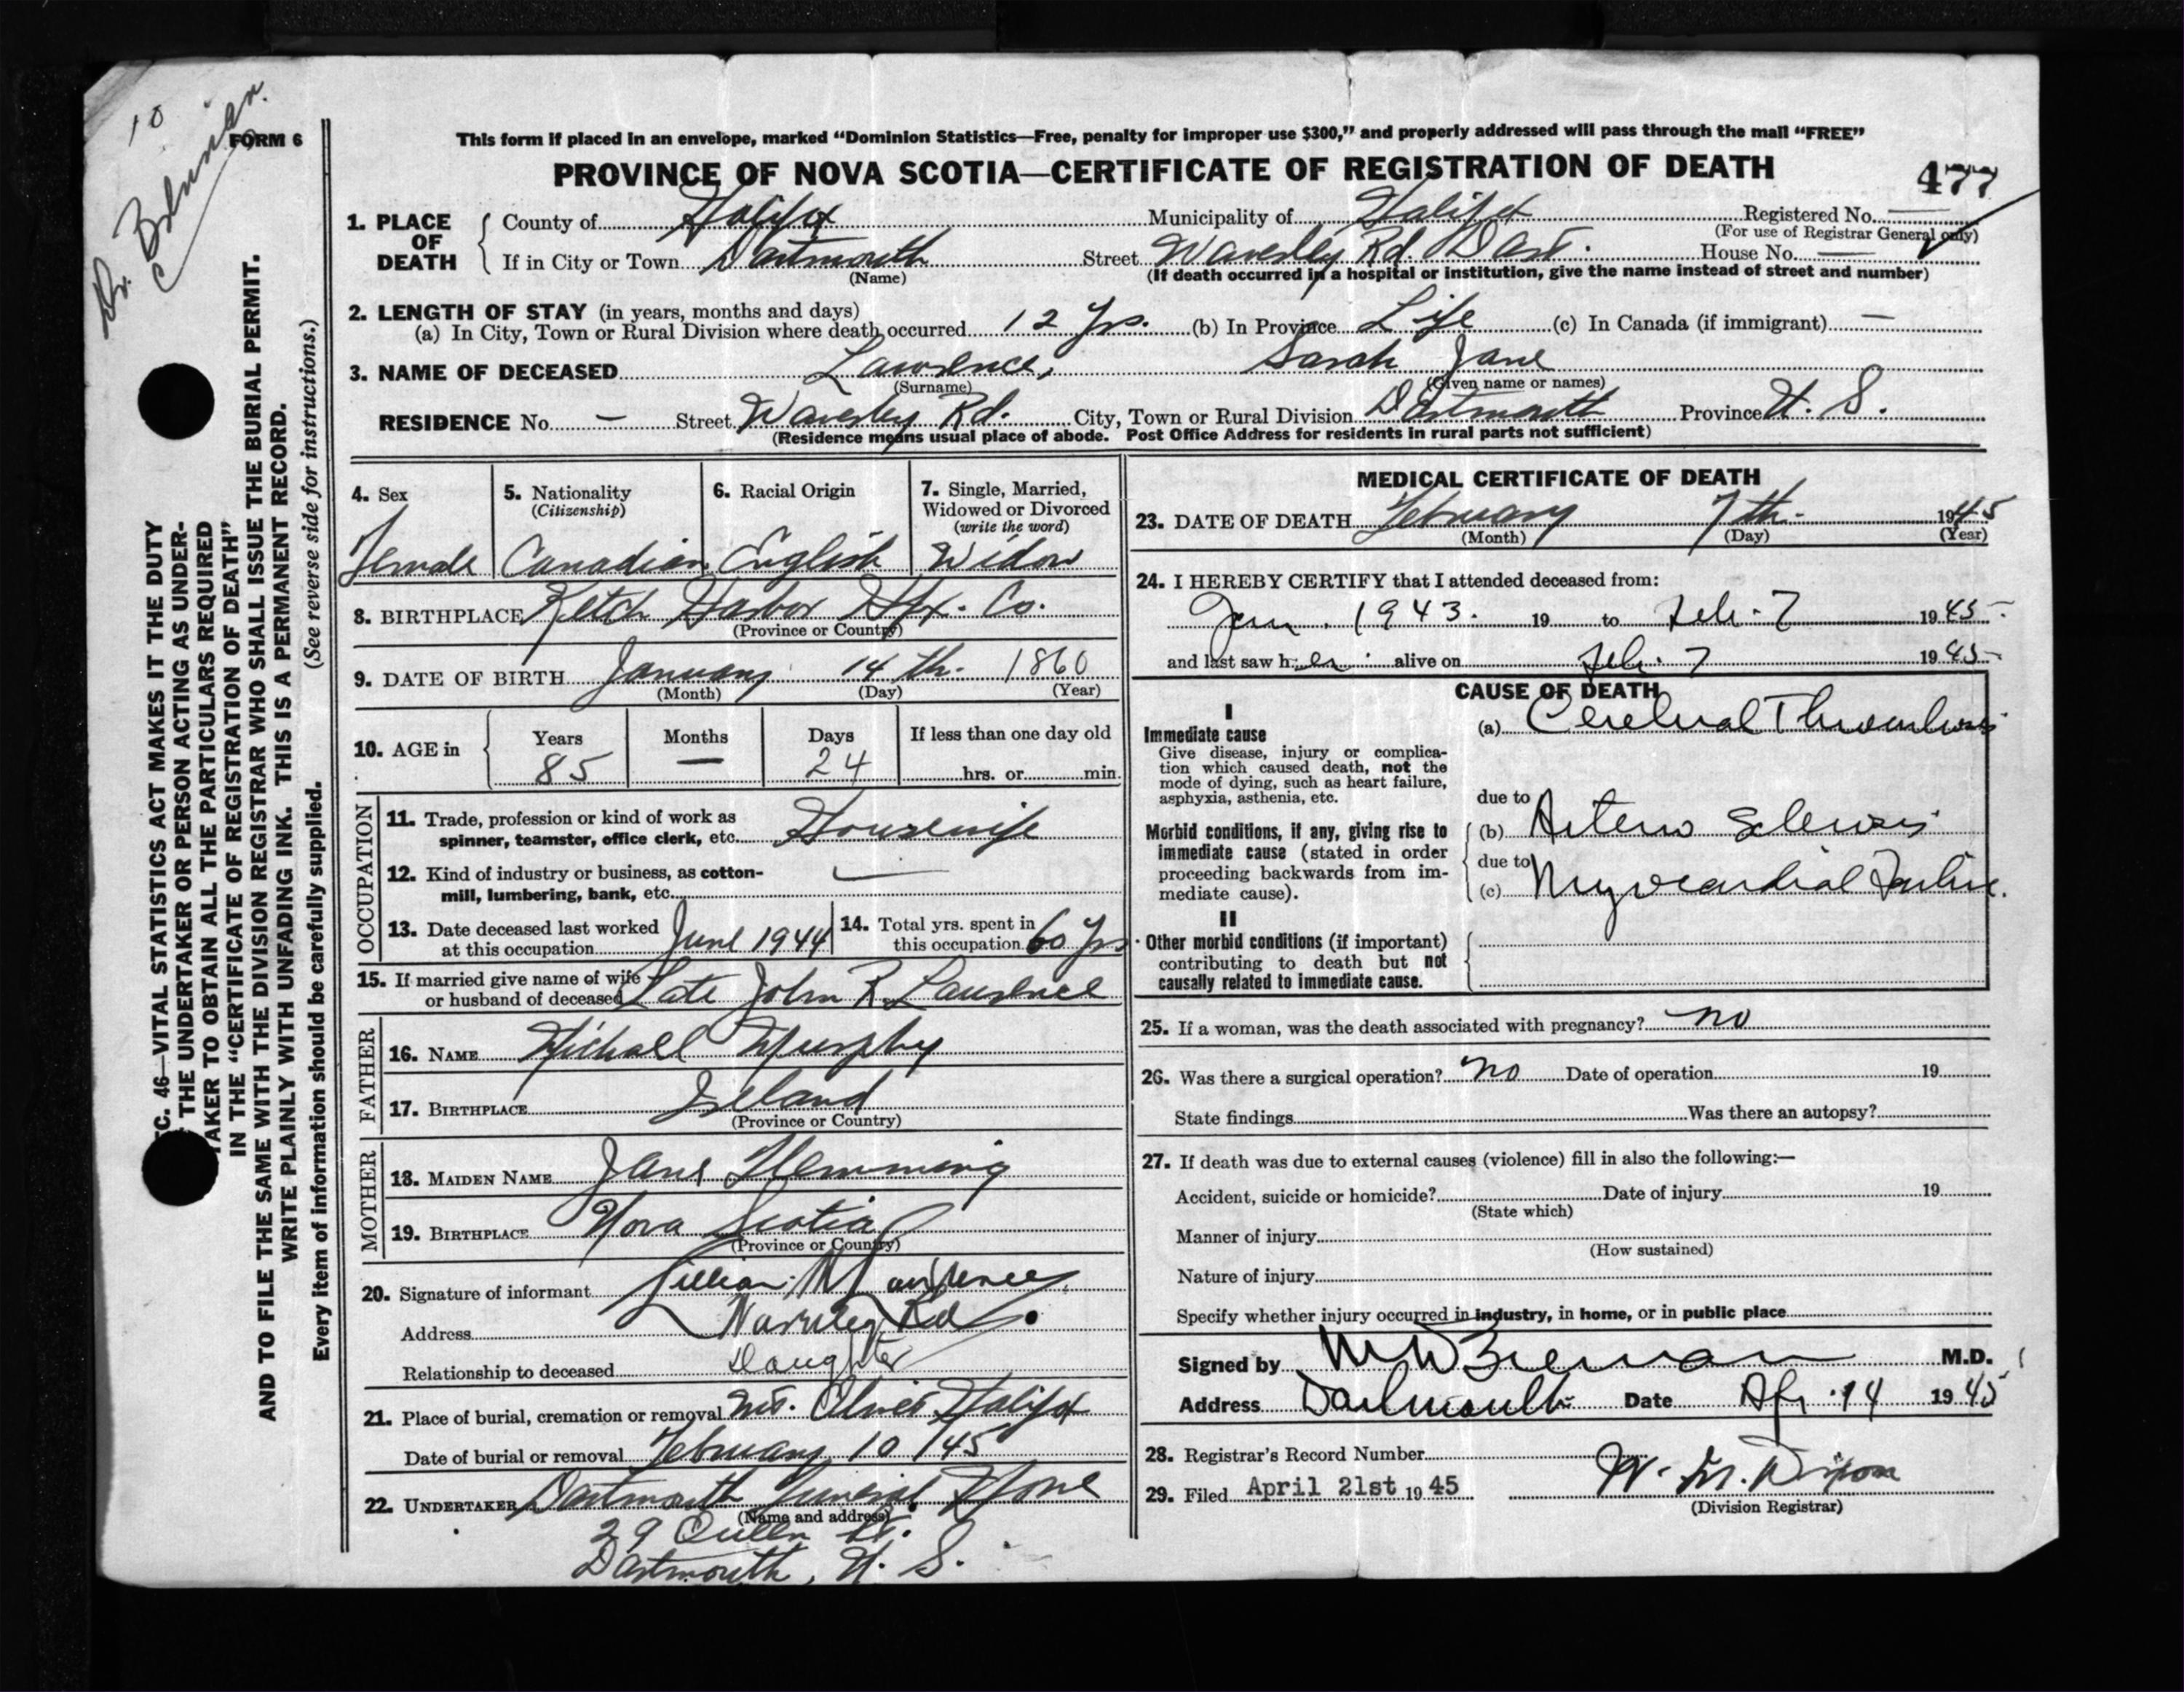 10
Dr.
FORM 6
This form if placed in an envelope, marked “Dominion Statistics—Free, penalty for improper use $300,” and properly addressed will pass through the mail “FREE”
PROVINCE OF NOVA SCOTIA—CERTIFICATE OF REGISTRATION OF DEATH
477
1. PLACE OF DEATH County of Halifax Municipality of Halifax Registered No. —
(For use of Registrar General only)
If in City or Town Dartmouth Street Waverley Rd. Dart. House No. —
(Name) (If death occurred in a hospital or institution, give the name instead of street and number)
2. LENGTH OF STAY (in years, months and days)
(a) In City, Town or Rural Division where death occurred 12 Yrs. (b) In Province Life (c) In Canada (if immigrant) —
3. NAME OF DECEASED Lawrence, Sarah Jane
(Surname) (Given name or names)
RESIDENCE No. — Street Waverley Rd. City, Town or Rural Division Dartmouth Province N. S.
(Residence means usual place of abode. Post Office Address for residents in rural parts not sufficient)
4. Sex
Female
5. Nationality
(Citizenship)
Canadian
6. Racial Origin
English
7. Single, Married,
Widowed or Divorced
(write the word)
Widow
8. BIRTHPLACE Ketch Harbor Hfx. Co.
(Province or Country)
9. DATE OF BIRTH January 14th. 1860
(Month) (Day) (Year)
10. AGE in Years Months Days If less than one day old
85 — 24 hrs. or min.
OCCUPATION
11. Trade, profession or kind of work as
spinner, teamster, office clerk, etc. Housewife
12. Kind of industry or business, as cotton-
mill, lumbering, bank, etc. —
13. Date deceased last worked
at this occupation June 1944
14. Total yrs. spent in
this occupation 60 Yrs.
15. If married give name of wife
or husband of deceased Late John R. Lawrence
FATHER
16. NAME Michael Murphy
17. BIRTHPLACE Ireland
(Province or Country)
MOTHER
18. MAIDEN NAME Jane Flemming
19. BIRTHPLACE Nova Scotia
(Province or Country)
20. Signature of informant Lillian M Lawrence
Address Waverley Rd
Relationship to deceased Daughter
21. Place of burial, cremation or removal Mt. Olivet Halifax
Date of burial or removal February 10 /45
22. UNDERTAKER Dartmouth Funeral Home
(Name and address)
29 Queen St.
Dartmouth, N. S.
MEDICAL CERTIFICATE OF DEATH
23. DATE OF DEATH February 7th. 1945
(Month) (Day) (Year)
24. I HEREBY CERTIFY that I attended deceased from:
Jan. 1943. 19 to Feb. 7 1945
and last saw her alive on Feb. 7 1945
CAUSE OF DEATH
I
Immediate cause
Give disease, injury or complica-
tion which caused death, not the
mode of dying, such as heart failure,
asphyxia, asthenia, etc.
(a) Cerebral Thrombosis
due to
Morbid conditions, if any, giving rise to
immediate cause (stated in order
proceeding backwards from im-
mediate cause).
(b) Arterio Sclerosis
due to
(c) Myocardial Failure.
II
Other morbid conditions (if important)
contributing to death but not
causally related to immediate cause.
25. If a woman, was the death associated with pregnancy? no
26. Was there a surgical operation? no Date of operation 19
State findings Was there an autopsy?
27. If death was due to external causes (violence) fill in also the following:—
Accident, suicide or homicide? Date of injury 19
(State which)
Manner of injury
(How sustained)
Nature of injury
Specify whether injury occurred in industry, in home, or in public place
Signed by M.D.
Address Dartmouth Date Apr. 14 1945
28. Registrar's Record Number
29. Filed April 21st 1945 W. M. Dixon
(Division Registrar)
EC. 46—VITAL STATISTICS ACT MAKES IT THE DUTY
THE UNDERTAKER OR PERSON ACTING AS UNDER-
TAKER TO OBTAIN ALL THE PARTICULARS REQUIRED
IN THE “CERTIFICATE OF REGISTRATION OF DEATH”
AND TO FILE THE SAME WITH THE DIVISION REGISTRAR WHO SHALL ISSUE THE BURIAL PERMIT.
WRITE PLAINLY WITH UNFADING INK. THIS IS A PERMANENT RECORD.
Every item of information should be carefully supplied. (See reverse side for instructions.)